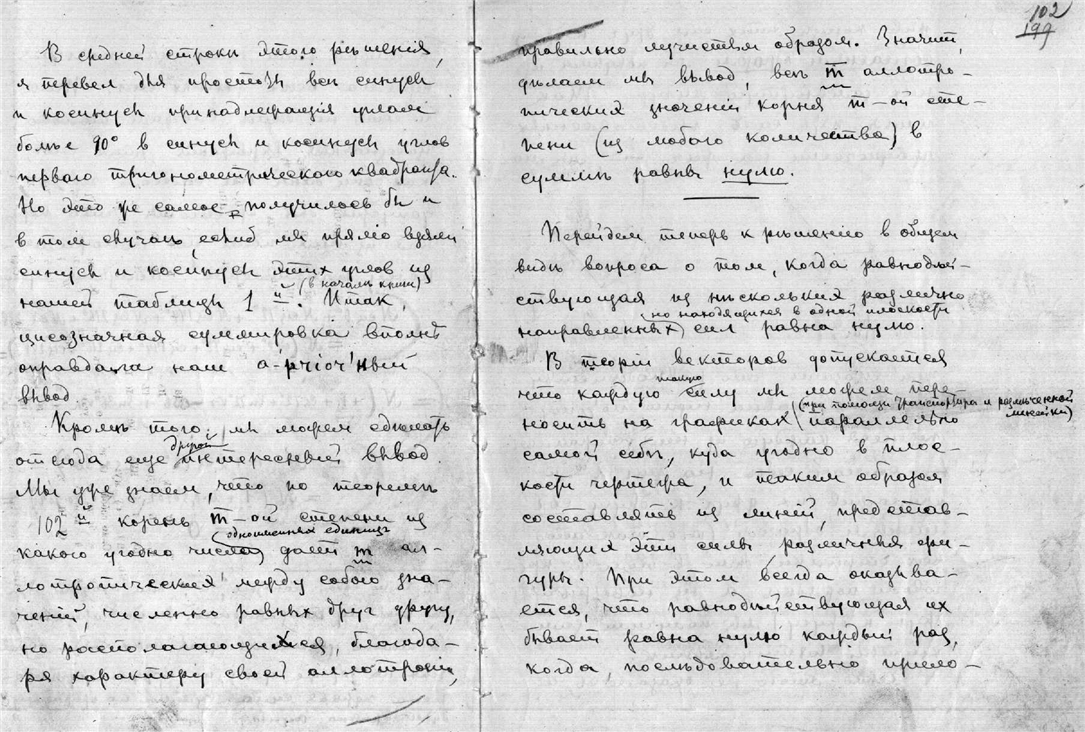 В средней строкѣ этого рѣшенія,
я перевел для простоты всѣ синусы
и косинусы принадлежащія углам
больше 90° в синусы и косинусы углов
перваго тригонометрическаго квадранта.
Но это же самое получилось бы и
в том случаѣ еслиб мы прямо взяли
синусы и косинусы этих углов из
(в началѣ книги)
нашей таблицы 1-й. Итак
цисозначная суммировка вполнѣ
оправдала наш а-ріорный
вывод
Кромѣ того, мы можем сдѣлать
другой
отсюда еще интересный вывод
Мы уже знаем, что по теоремѣ
102-й корень m-ой степени из
одноименных единиц
какого угодно числа даст m ал-
лотропических между собою зна-
чений, численно равных друг другу,
но располагающихся, благода-
ря характеру своей аллотропіи,
102
199
правильно лучистым образом. Значит,
дѣлаем мы вывод, всѣ m аллотро-
пических значеній корня m-ой сте-
пени (из любого количества) в
суммѣ равны нулю.
Перейдем теперь к рѣшенію в общем
видѣ вопроса о том, когда равнодѣй-
ствующая из нѣскольких различно
(но находящихся в одной плоскости
направленных) сил равна нулю.
В теоріи векторов допускается
такую
что каждую силу мы можем пере-
(при помощи транспортира и размѣченной
линейки)
носить на графиках параллельно
самой себѣ, куда угодно в плос-
кости чертежа, и таким образом
составлять из линій, представ-
ляющих эти силы различныя фи-
гуры. При этом всегда оказыва-
ется, что равнодѣйствующая их
бывает равна нулю каждый раз,
когда, послѣдовательно прило-